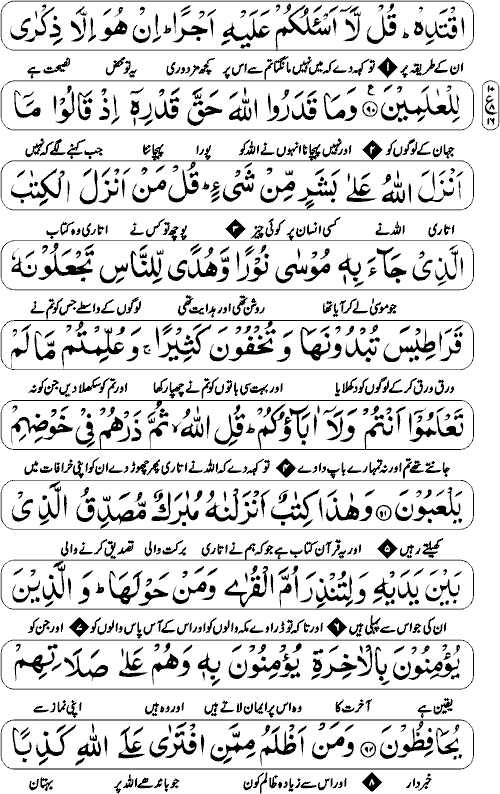 اقْتَدِهْ ؕ قُلْ لَّاۤ اَسْـَٔلُكُمْ عَلَیْهِ اَجْرًا ؕ اِنْ هُوَ اِلَّا ذِكْرٰی
ان کے طریقہ پر ۱ تو کہہ دے کہ میں نہیں مانگتا تم سے اس پر کچھ مزدوری یہ تو محض نصیحت ہے
لِلْعٰلَمِیْنَ ﴿۹۰﴾ وَمَا قَدَرُوا اللّٰهَ حَقَّ قَدْرِهٖۤ اِذْ قَالُوْا مَاۤ
جہان کے لوگوں کو ۲ اور نہیں پہچانا انہوں نے اللہ کو پورا پہچاننا جب کہنے لگے کہ نہیں
اَنْزَلَ اللّٰهُ عَلٰی بَشَرٍ مِّنْ شَیْءٍ ؕ قُلْ مَنْ اَنْزَلَ الْكِتٰبَ
اتاری اللہ نے کسی انسان پر کوئی چیز ۳ پوچھ تو کس نے اتاری وہ کتاب
الَّذِیْ جَآءَ بِهٖ مُوْسٰی نُوْرًا وَّهُدًی لِّلنَّاسِ تَجْعَلُوْنَهٗ
جو موسیٰ لے کر آیا تھا روشن تھی اور ہدایت تھی لوگوں کے واسطے جس کو تم نے
قَرَاطِیْسَ تُبْدُوْنَهَا وَتُخْفُوْنَ كَثِیْرًا ۚ وَعُلِّمْتُمْ مَّا لَمْ
ورق ورق کر کے لوگوں کو دکھلایا اور بہت سی باتوں کو تم نے چھپا رکھا اور تم کو سکھلا دیں جن کو نہ
تَعْلَمُوْۤا اَنْتُمْ وَلَاۤ اٰبَآؤُكُمْ ؕ قُلِ اللّٰهُ ۙ ثُمَّ ذَرْهُمْ فِیْ خَوْضِهِمْ
جانتے تھے تم اور نہ تمہارے باپ دادے ۴ تو کہہ دے کہ اللہ نے اتاری پھر چھوڑ دے ان کو اپنی خرافات میں
یَلْعَبُوْنَ ﴿۹۱﴾ وَهٰذَا كِتٰبٌ اَنْزَلْنٰهُ مُبٰرَكٌ مُّصَدِّقُ الَّذِیْ
کھیلتے رہیں ۵ اور یہ قرآن کتاب ہے جو کہ ہم نے اتاری برکت والی تصدیق کرنے والی
بَیْنَ یَدَیْهِ وَلِتُنْذِرَ اُمَّ الْقُرٰی وَمَنْ حَوْلَهَا ؕ وَالَّذِیْنَ
ان کی جو اس سے پہلی ہیں ۶ اور تاکہ تو ڈراوے مکہ والوں کو اور اس کے آس پاس والوں کو ۷ اور جن کو
یُؤْمِنُوْنَ بِالْاٰخِرَةِ یُؤْمِنُوْنَ بِهٖ وَهُمْ عَلٰی صَلَاتِهِمْ
یقین ہے آخرت کا وہ اس پر ایمان لاتے ہیں اور وہ ہیں اپنی نماز سے
یُحَافِظُوْنَ ﴿۹۲﴾ وَمَنْ اَظْلَمُ مِمَّنِ افْتَرٰی عَلَی اللّٰهِ كَذِبًا
خبردار ۸ اور اس سے زیادہ ظالم کون جو باندھے اللہ پر بہتان